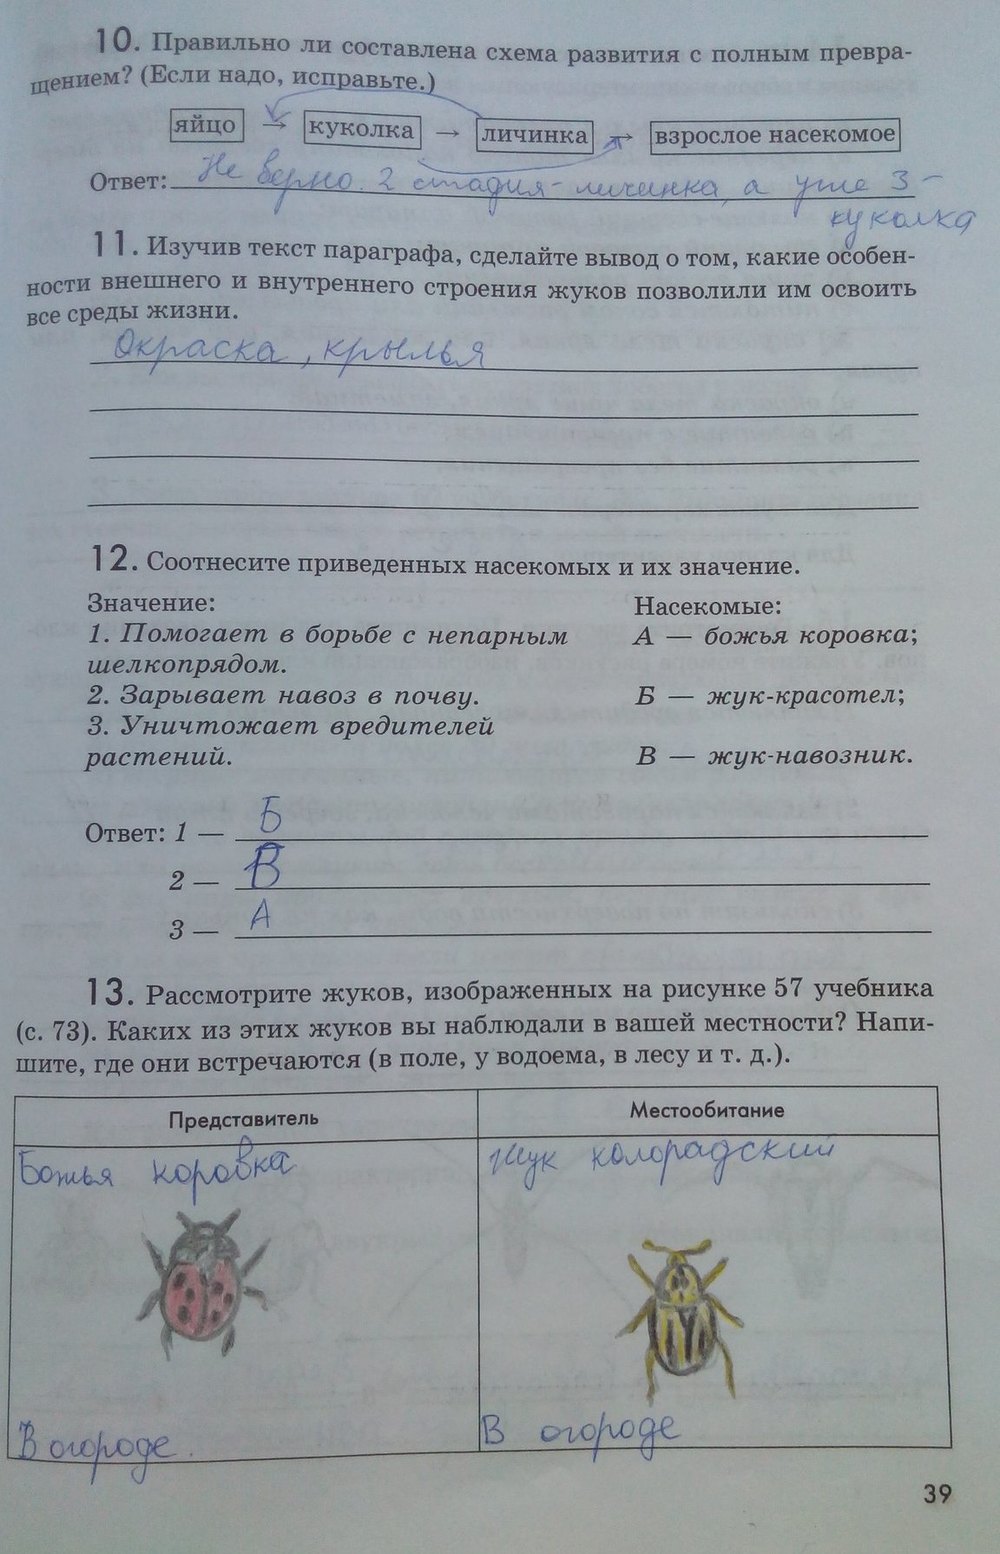 10. Правильно ли составлена схема развития с полным превра-
щением? (Если надо, исправьте.)
яйцо → куколка → личинка → взрослое насекомое
Ответ: Не верно. 2 стадия - личинка, а уже 3 -
куколка
11. Изучив текст параграфа, сделайте вывод о том, какие особен-
ности внешнего и внутреннего строения жуков позволили им освоить
все среды жизни.
Окраска, крылья
12. Соотнесите приведенных насекомых и их значение.
Значение: Насекомые:
1. Помогает в борьбе с непарным А — божья коровка;
шелкопрядом.
2. Зарывает навоз в почву. Б — жук-красотел;
3. Уничтожает вредителей
растений. В — жук-навозник.
Ответ: 1 — Б
2 — В
3 — А
13. Рассмотрите жуков, изображенных на рисунке 57 учебника
(с. 73). Каких из этих жуков вы наблюдали в вашей местности? Напи-
шите, где они встречаются (в поле, у водоема, в лесу и т. д.).
Представитель Местообитание
Божья коровка Жук колорадский
В огороде. В огороде
39